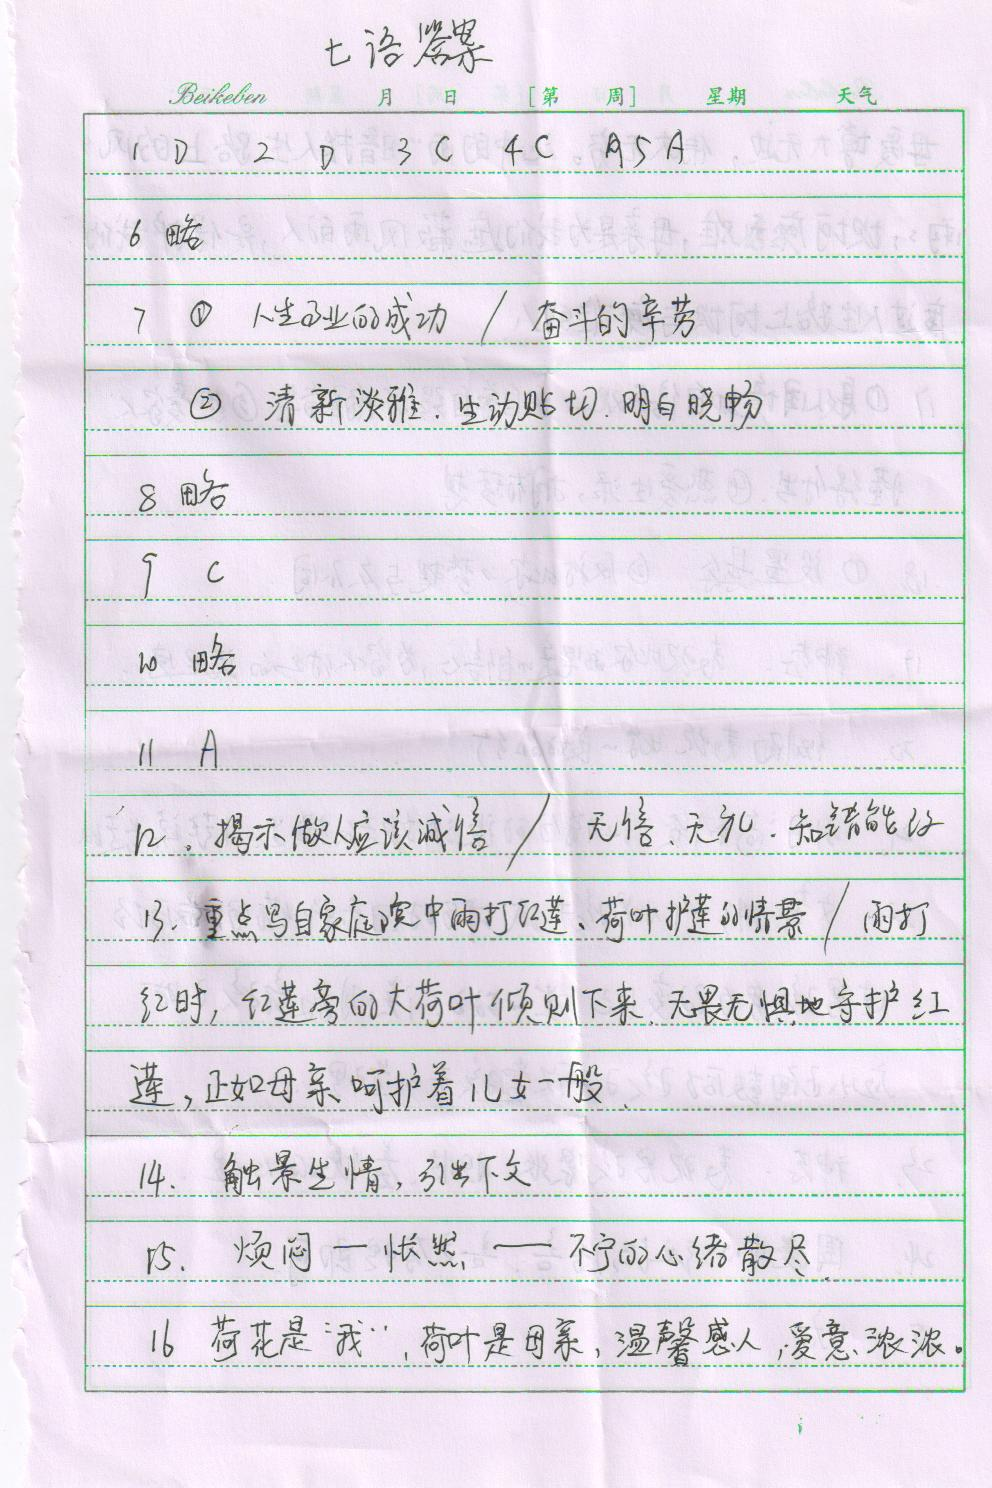 七语答案
Beikeben 月 日 [第 周] 星期 天气
1 D 2 D 3 C 4 C 5 A
6 略
7 ① 人生事业的成功 / 奋斗的辛劳
② 清新淡雅、生动贴切、明白晓畅
8 略
9 C
10 略
11 A
12、揭示做人应该诚信 / 无信、无礼、知错能改
13、重点写自家庭院中雨打红莲、荷叶护莲的情景 / 雨打
红时,红莲旁的大荷叶倾侧下来、无畏无惧地守护红
莲,正如母亲呵护着儿女一般.
14. 触景生情,引出下文
15. 烦闷 — 怅然 — 不宁的心绪散尽.
16 荷花是“我”,荷叶是母亲,温馨感人,爱意浓浓。